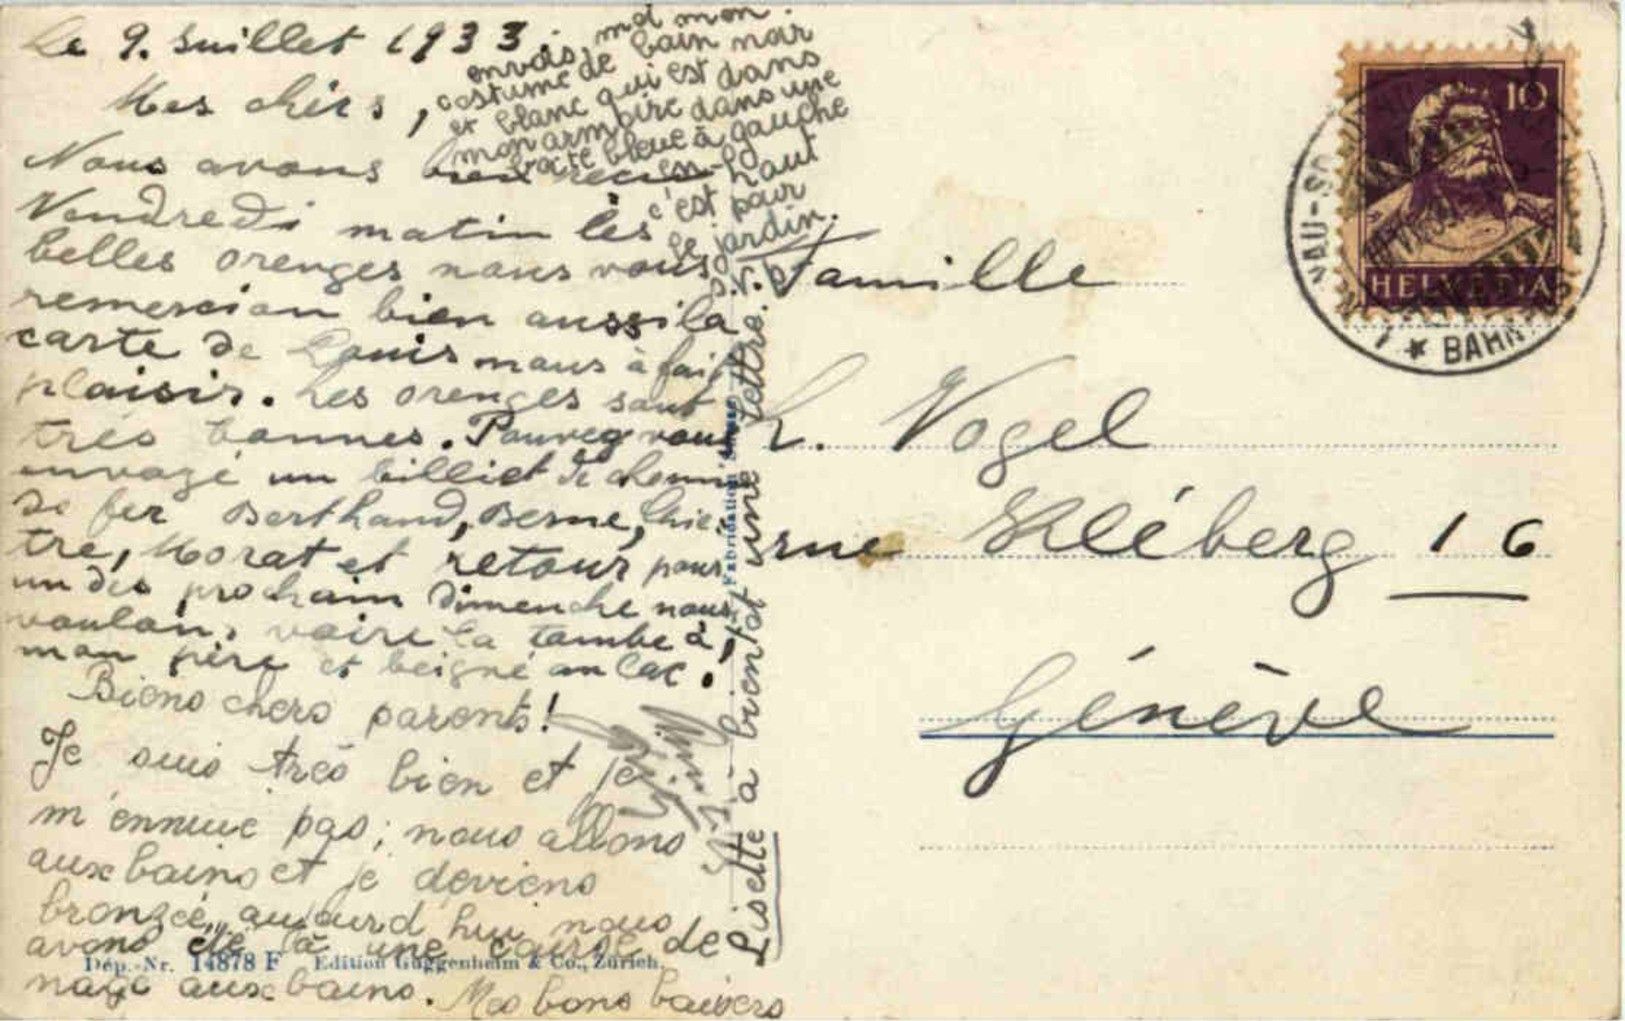 Le 9. Juillet 1933.
Mes chérs,
Nous avons bien recus
Vendredi matin les
belles orenges nous vous
remercion bien aussi la
carte de Louis nous à fait
plaisir. Les orenges sont
très bonnes. Pouveg vous
envoyé un billiet de chemin
de fer Berthaud, Berne, Chiè
tre, Morat et retour pour
un des prochain Dimenche nous
voulon, voire la tombe à,
mon père et beigné au lac.
Biens chers parents!
Je suis très bien et je
m'ennuie pas; nous allons
aux bains et je deviens
bronzée, aujourd hui nous
avons été à une course de
nage aux bains. Mes bons baisers
Lisette à bientot une lettre.
envois moi mon
costume de bain noir
et blanc qui est dans
mon armoire dans une
boite bleue à gauche
en haut
c'est pour
le jardin.
S.V.P.
Famille
L. Vogel
rue Kléberg 16
Génève
Dép.-Nr. 14878 F Edition Guggenheim & Co., Zürich.
Fabrication Suisse
10
HELVETIA
BAHN